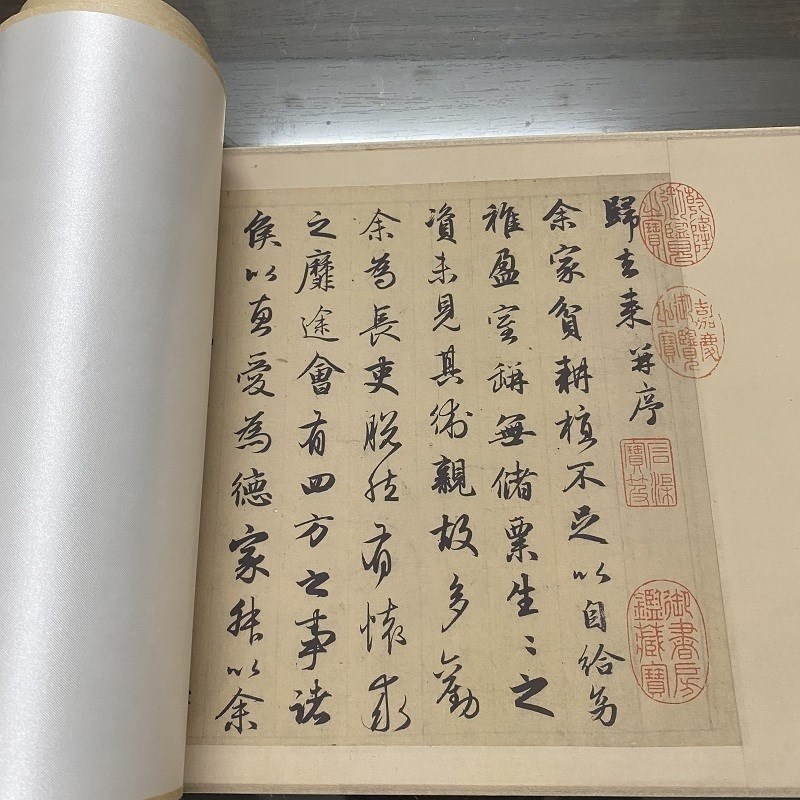 乾隆御覽之寶
嘉慶御覽之寶
石渠寶笈
御書房鑑藏寶
歸去来并序
余家貧耕植不足以自給幼
稚盈室缾無儲粟生〻之
資未見其術親故多勸
余為長吏脱然有懷求
之靡途會有四方之事諸
侯以惠愛為德家叔以余